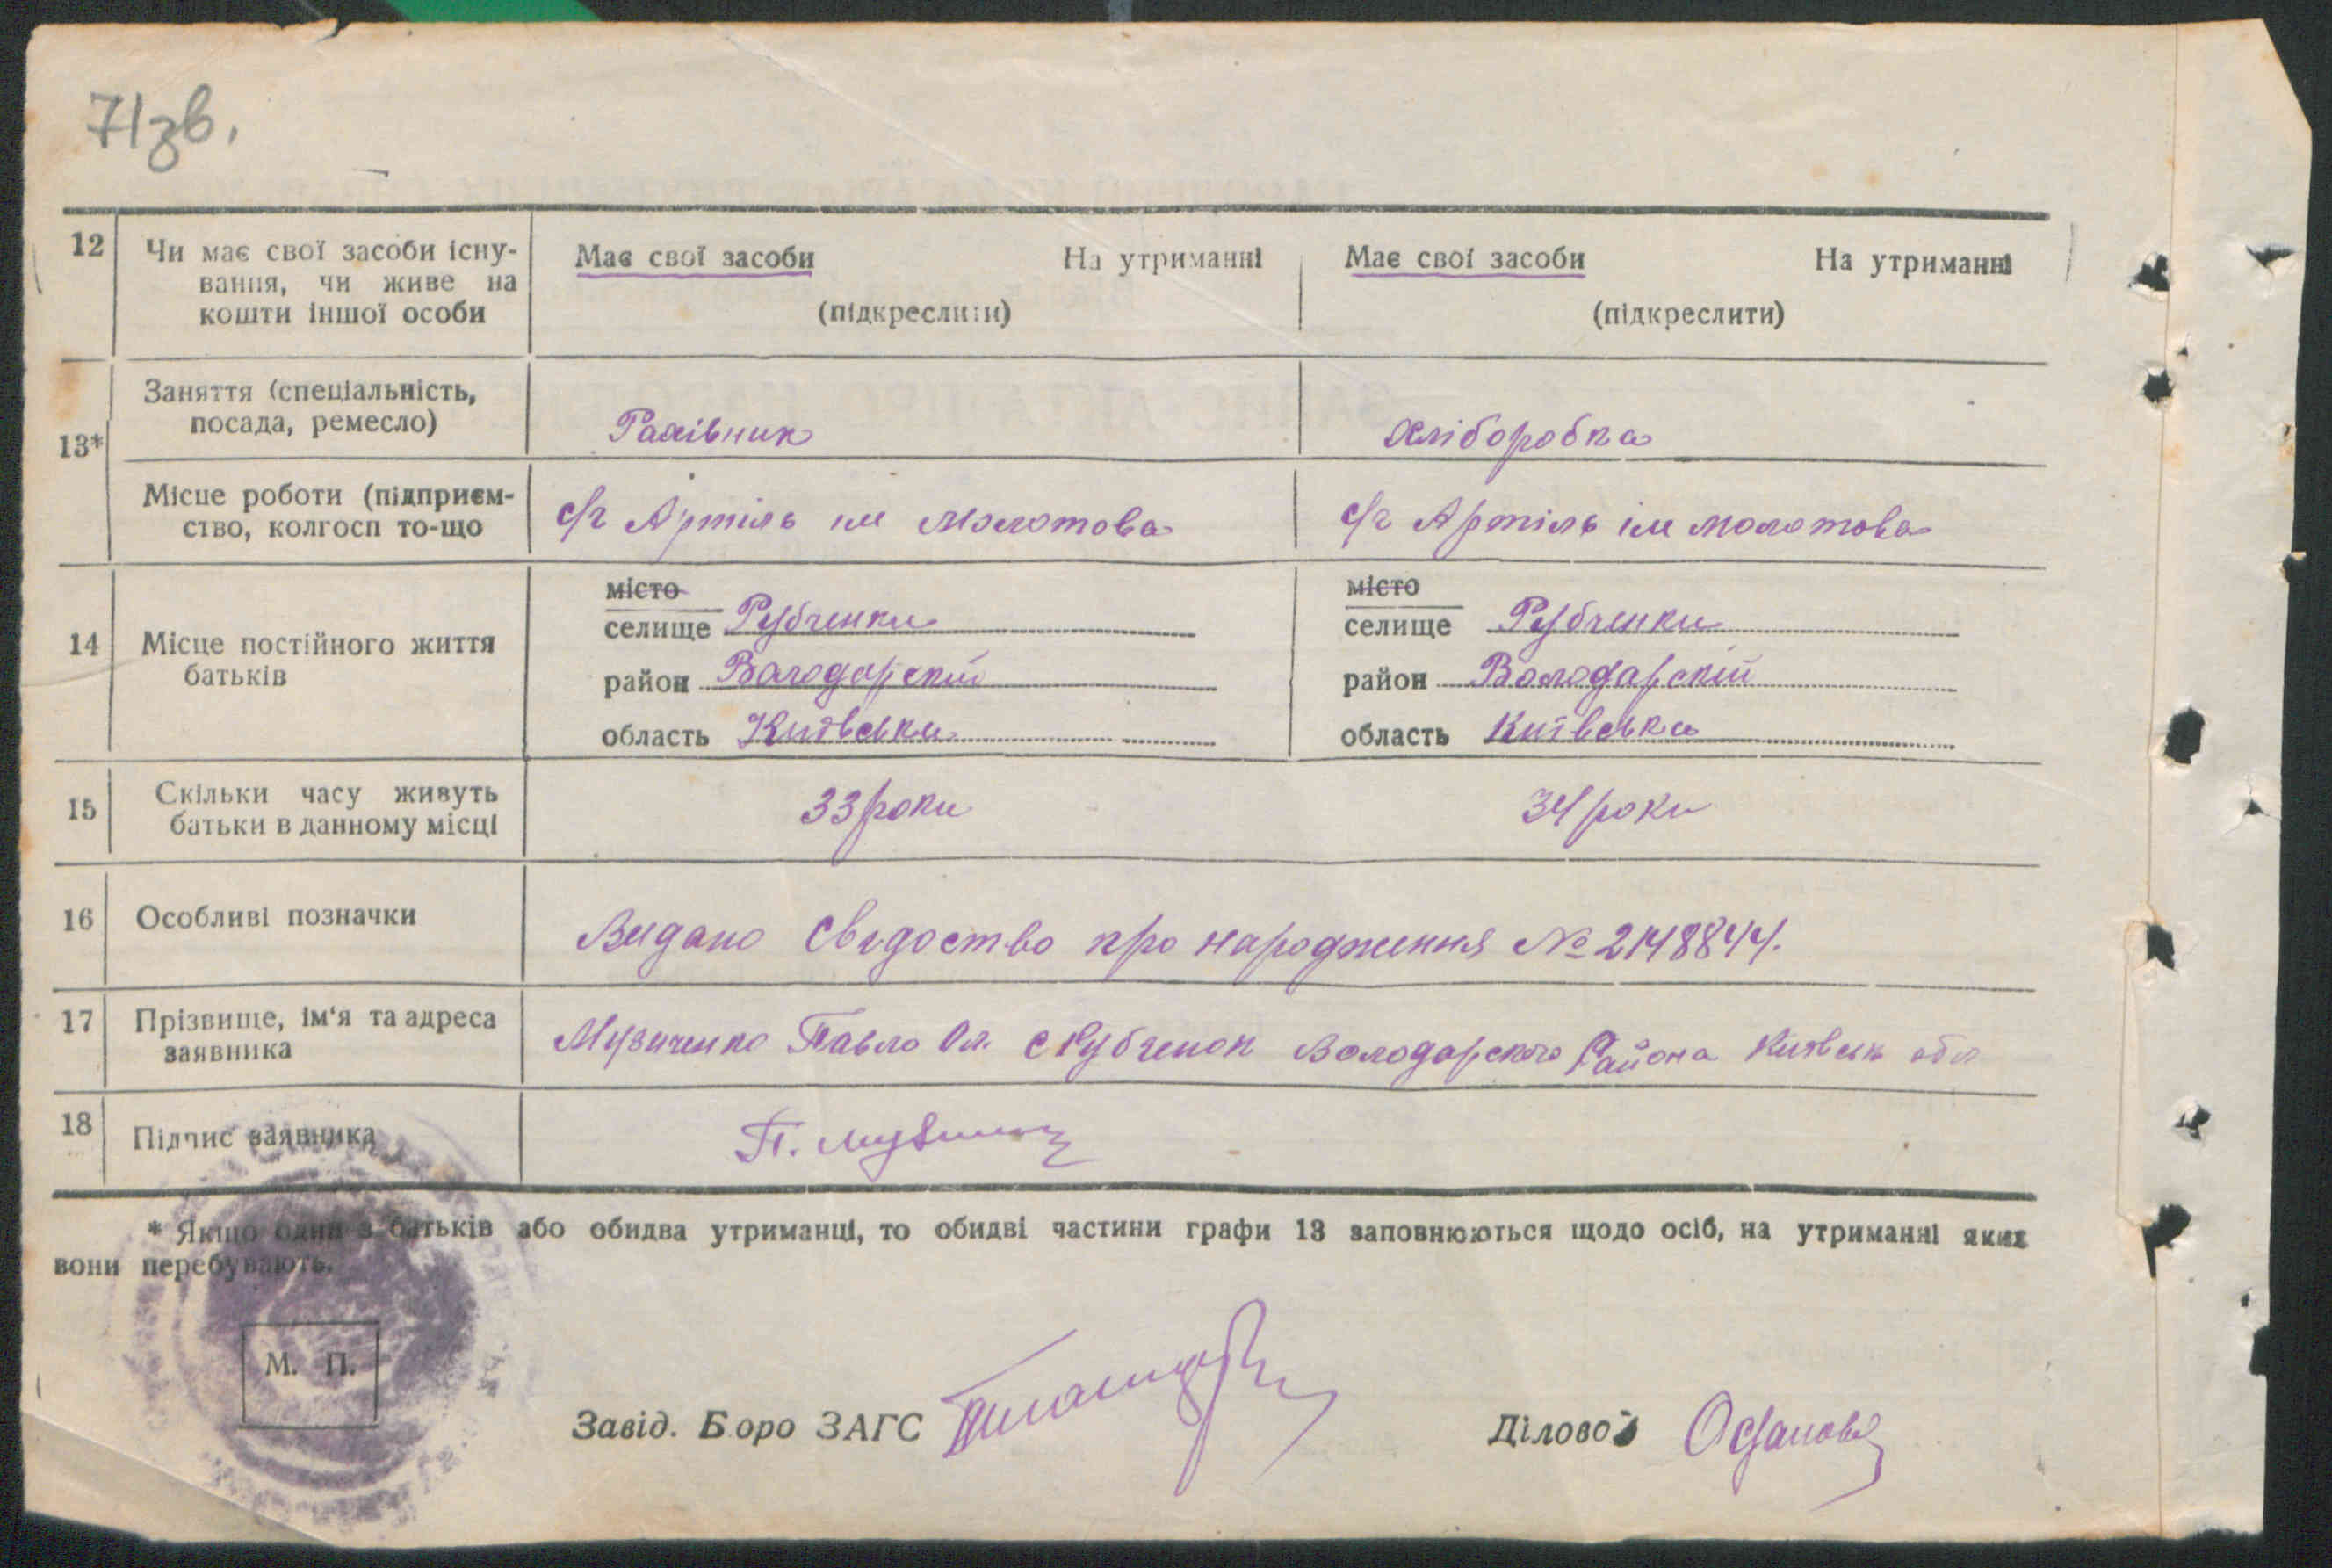 71зв.
12 Чи має свої засоби існу-
вання, чи живе на
кошти іншої особи
Має свої засоби На утриманні
(підкреслити)
Має свої засоби На утриманні
(підкреслити)
13*
Заняття (спеціальність,
посада, ремесло)
Рахівник
хліборобка
Місце роботи (підприєм-
ство, колгосп то-що
с/г Артіль ім Молотова
с/г Артіль ім Молотова
14 Місце постійного життя
батьків
місто
селище Рубченки
район Володарскій
область Київська
місто
селище Рубченки
район Володарскій
область Київська
15 Скільки часу живуть
батьки в данному місці
33 роки
34 роки
16 Особливі позначки
Видано Свідоство про народження № 2148844.
17 Прізвище, ім'я та адреса
заявника
Музиченко Павло Ол. с Рубченок Володарского Района Київськ обл
18 Підпис заявника
* Якщо один з батьків або обидва утриманці, то обидві частини графи 13 заповнюються щодо осіб, на утриманні яких
вони перебувають.
М. П.
Завід. Бюро ЗАГС
Діловод